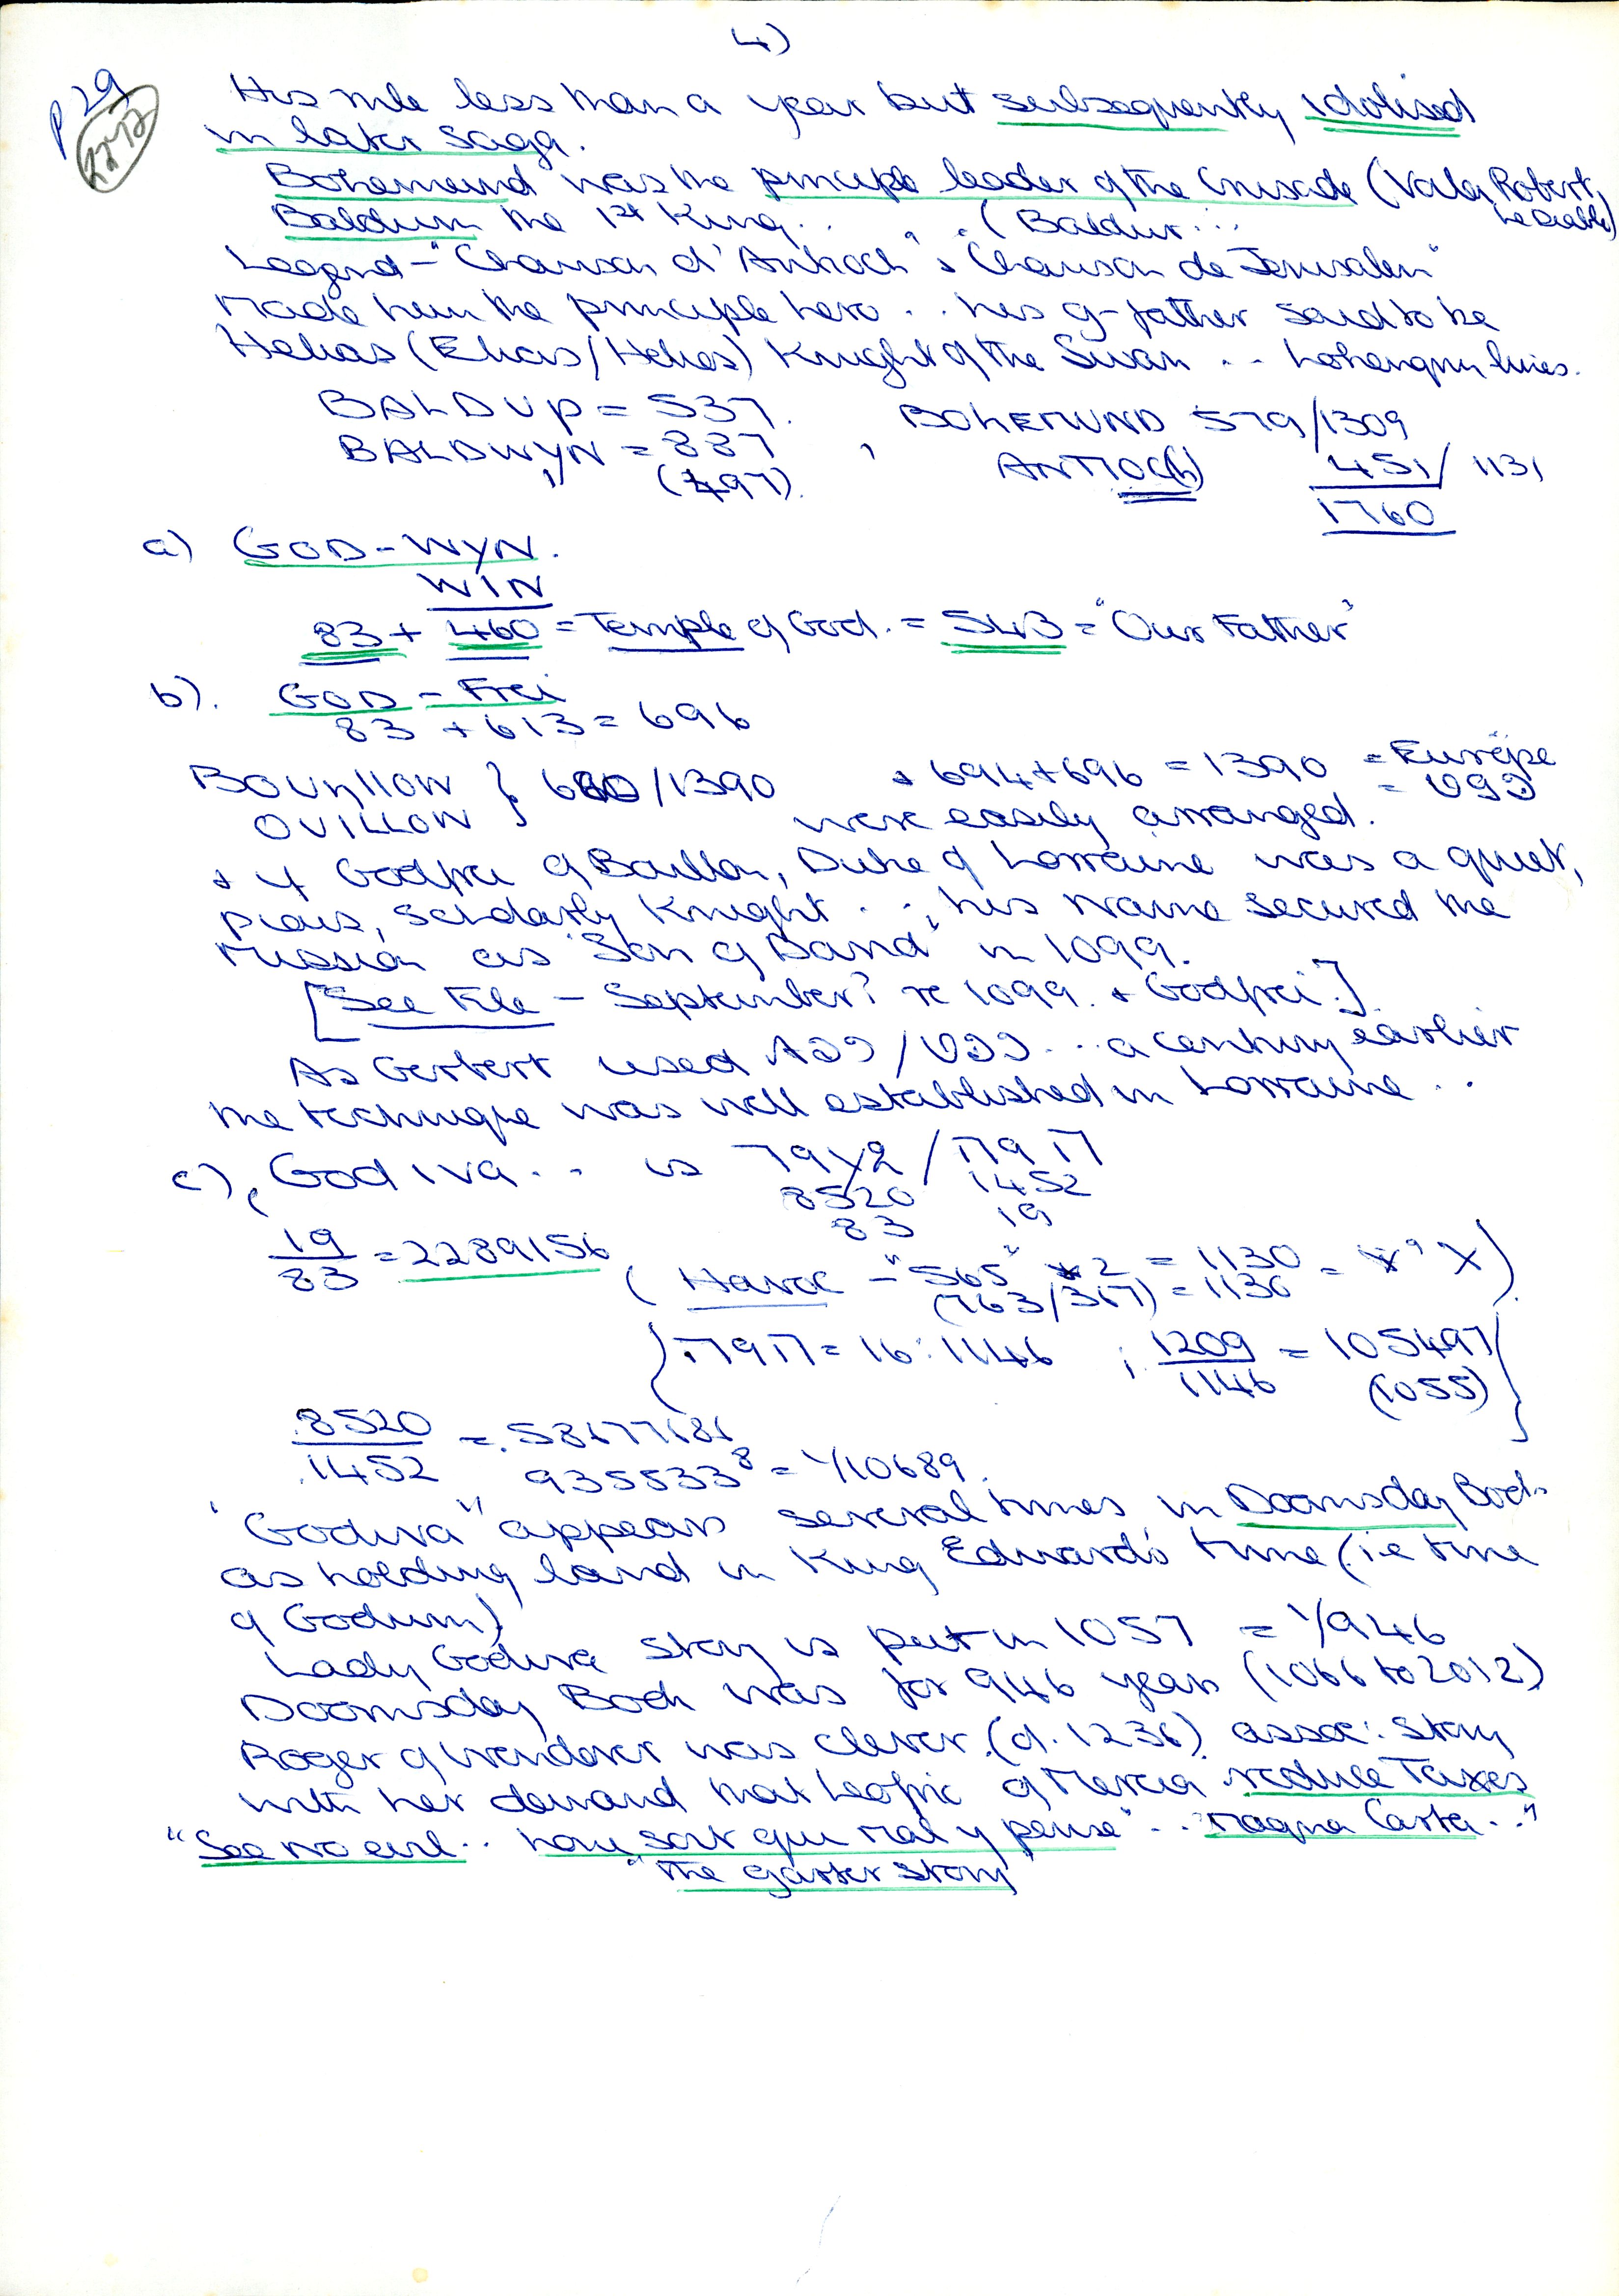 4)
P 29
2272
His rule less than a year but subsequently idolised
in later saga.
Bohemund was the principle leader of the Crusade (Vala, Robert,
Le Diable)
Balduin the 1st King.. . (Baldur...
Legend - "Chanson d'Antioch" & "Chanson de Jerusalem"
made him the principle hero .. his g-father said to be
Helias (Elias/Helios) Knight of the Swan .. Lohengrin lines.
BALDUR = 537. BOHEMUND 579/1309
BALDWYN = 887 , ANTIOC(h) 451/ 1131
(497). 1760
a) GOD-WYN.
WIN
83 + 460 = Temple of God. = 543 = "Our Father"
b). GOD - Frei
83 + 613 = 696
BOUILLON } 680/1390 & 694+696 = 1390 = Europe
OUILLON } were easily arranged.
& if Godfrei of Baillon, Duke of Lorraine was a quiet,
pious, scholarly Knight ..; his name secured the
mission as "Son of Band" in 1099.
[See File - September? re 1099. & Godfrei.]
As Gerbert used ... a century earlier
the technique was well established in Lorraine ..
c), God iva.. is 79x2 / 
8520 1452
83 19
19/83 = 2289156
(Havoc - "565" x 2 = 1130 =
(763/367) = 1130
= 16:1146 ; 1209/1146 = 105497
(1055)
8520/1452 = .58677686
9355338 = 1/10689.
"Godiva" appears several times in Doomsday Book
as holding land in King Edward's time (i.e time
of Godwin)
Lady Godiva story is put in 1057 = 1/946
Doomsday Book was for 946 years (1066 to 2012)
Roger of Wendover was clever. (d. 1236). assoc: story
with her demand that Leofric of Mercia reduce Taxes
"See no evil .. honi soit qui mal y pense" .. "Magna Carta.."
"the garter story"